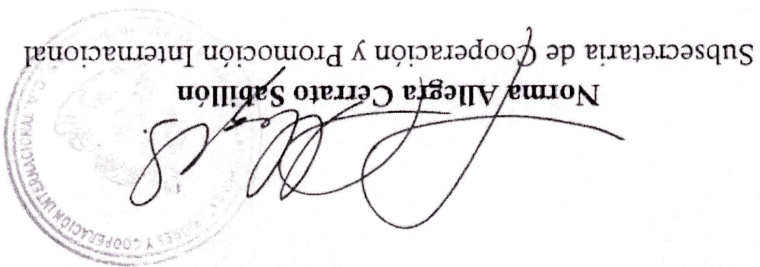 Norma Allegra Cerrato Sabillón
Subsecretaria de Cooperación y Promoción Internacional
Y COOPERACION INTERNACIONAL